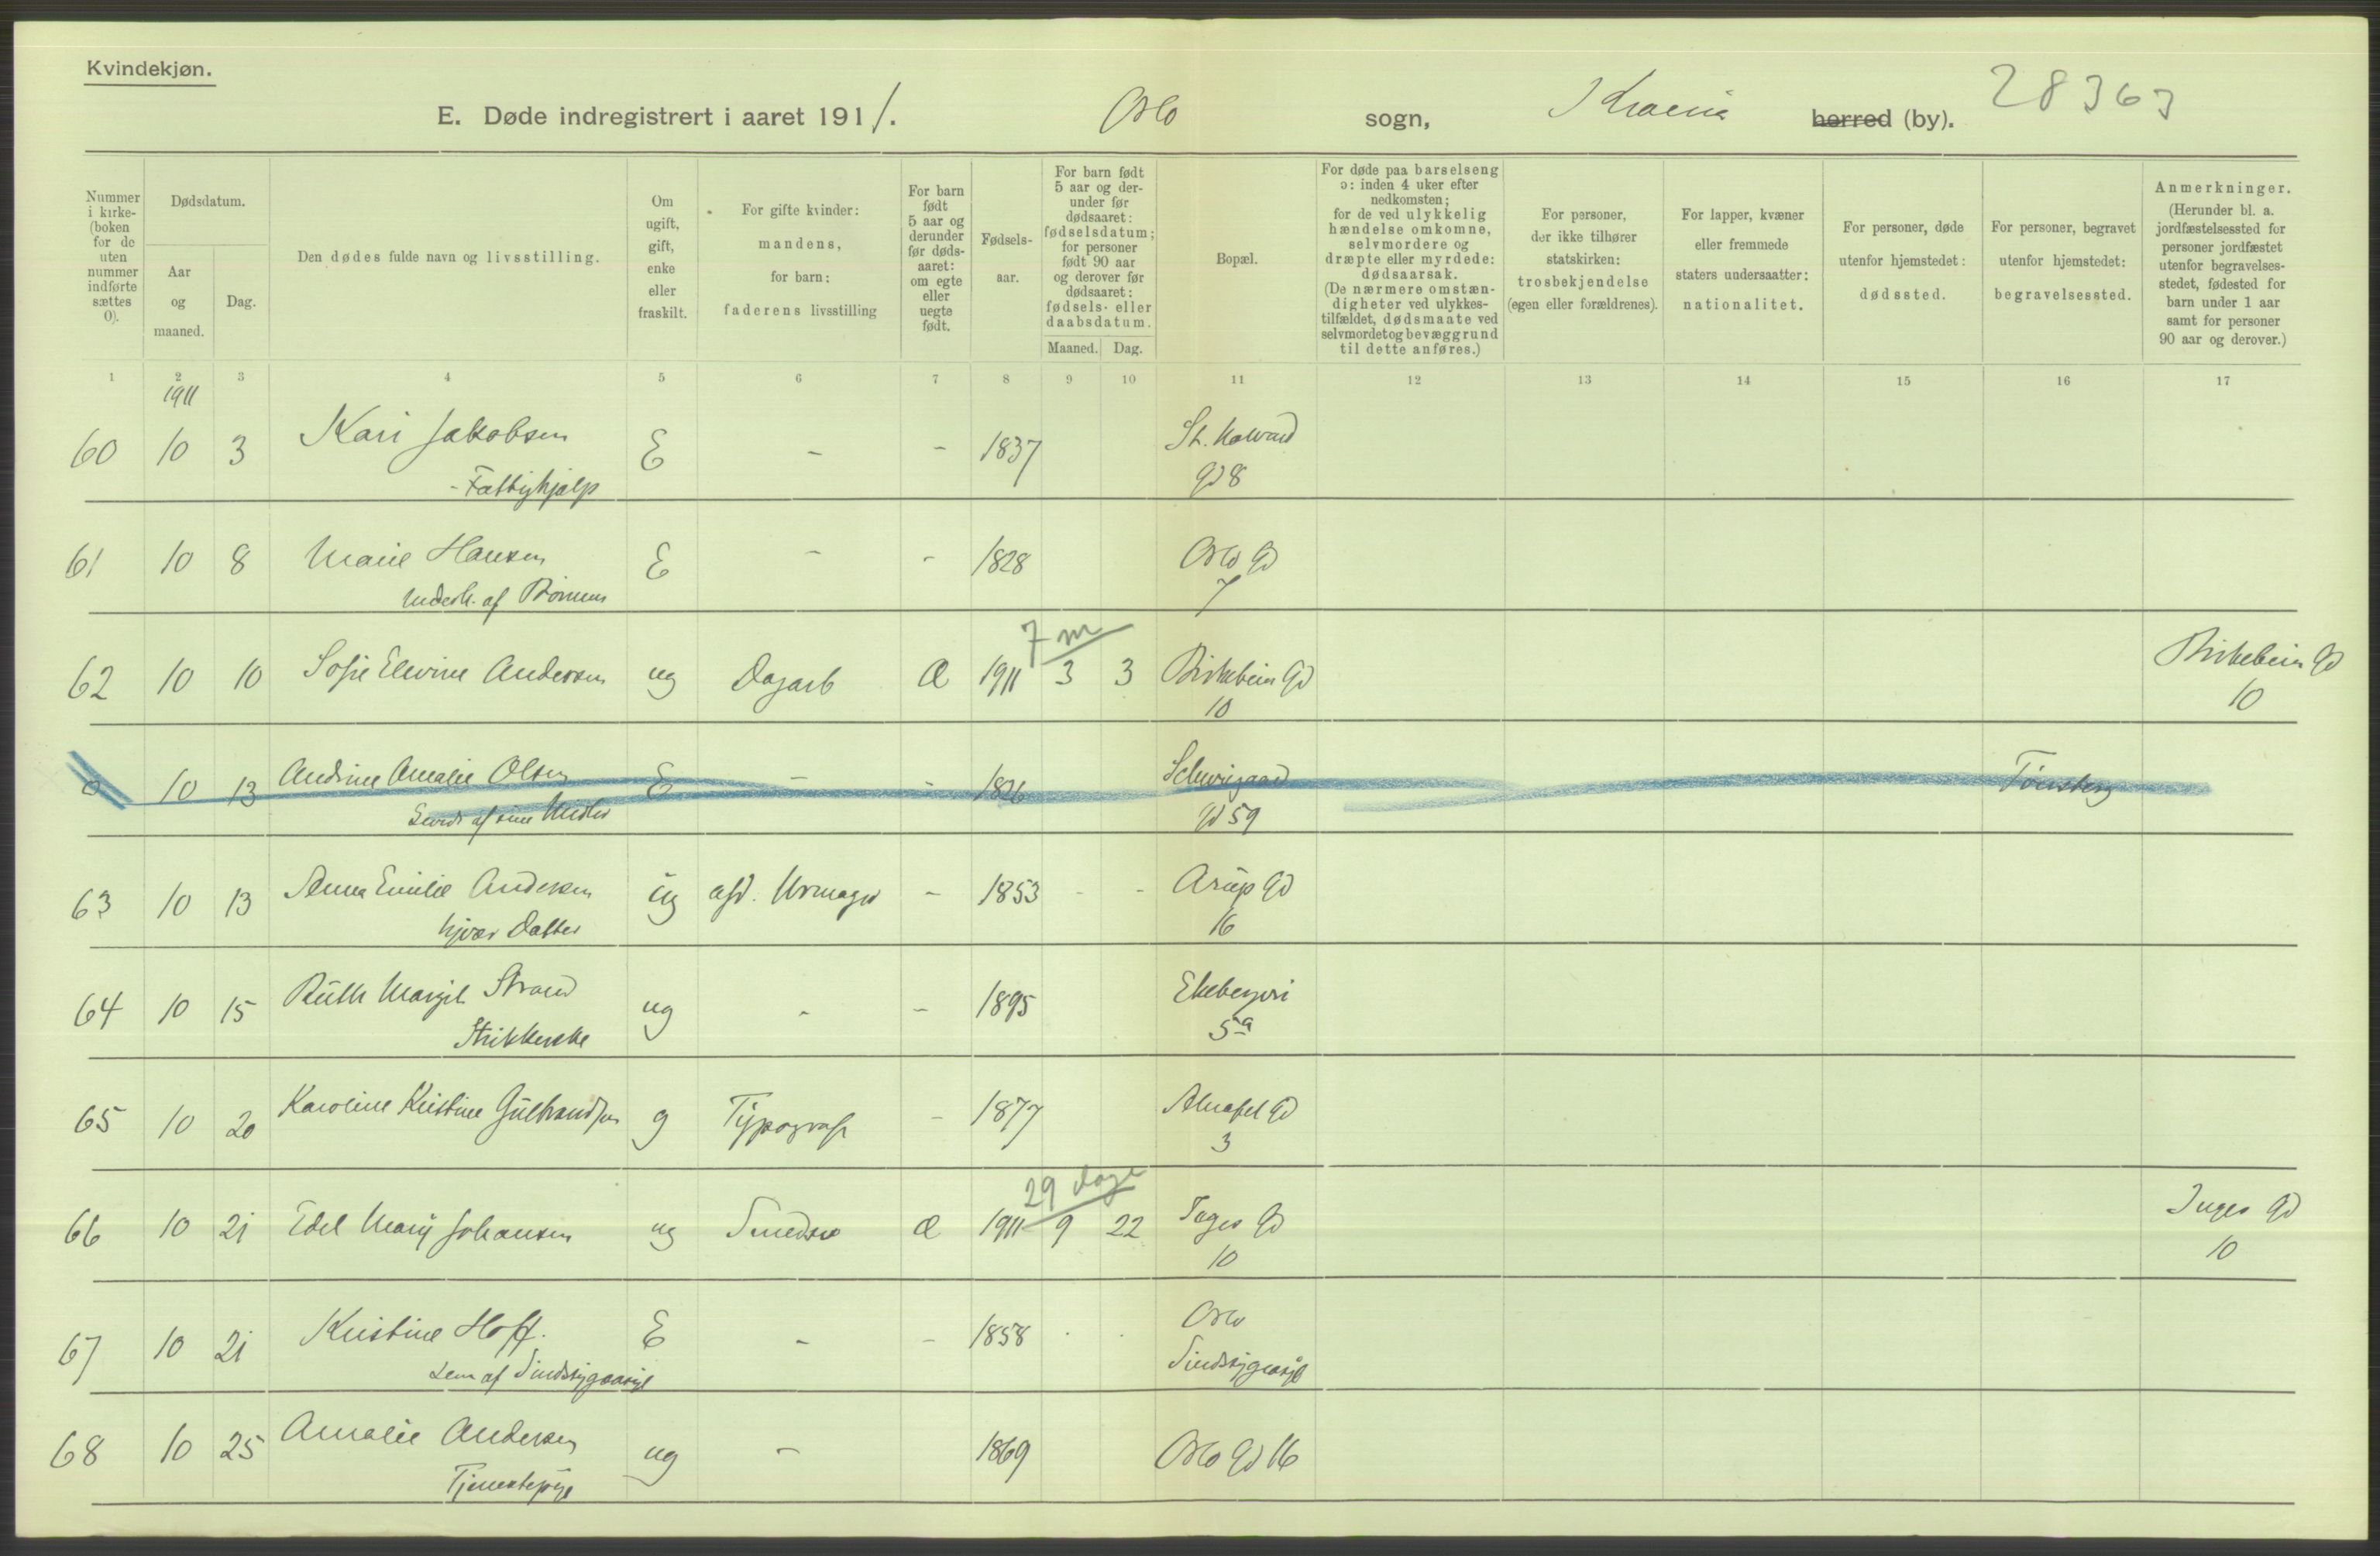 Kvindekjøn.
E. Døde indregistrert i aaret 1911. Oslo sogn, Kra̅nia herred (by). 28363
Nummer i kirke- (boken for de uten nummer indførte sættes 0).
Dødsdatum.
Aar og maaned.
Dag.
Den dødes fulde navn og livsstilling.
Om ugift, gift, enke eller fraskilt.
For gifte kvinder: mandens, for barn: faderens livsstilling
For barn født 5 aar og derunder før døds- aaret: om egte eller uegte født.
Fødsels- aar.
For barn født 5 aar og der- under før dødsaaret: fødselsdatum; for personer født 90 aar og derover før dødsaaret: fødsels- eller daabsdatum.
Maaned. Dag.
Bopæl.
For døde paa barselseng ɔ: inden 4 uker efter nedkomsten; for de ved ulykkelig hændelse omkomne, selvmordere og dræpte eller myrdede: dødsaarsak. (De nærmere omstæn- digheter ved ulykkes- tilfældet, dødsmaate ved selvmordet og bevæggrund til dette anføres.)
For personer, der ikke tilhører statskirken: trosbekjendelse (egen eller forældrenes).
For lapper, kvæner eller fremmede staters undersaatter: nationalitet.
For personer, døde utenfor hjemstedet: dødssted.
For personer, begravet utenfor hjemstedet: begravelsessted.
Anmerkninger. (Herunder bl. a. jordfæstelsessted for personer jordfæstet utenfor begravelses- stedet, fødested for barn under 1 aar samt for personer 90 aar og derover.)
1 2 3 4 5 6 7 8 9 10 11 12 13 14 15 16 17
1911
60 10 3 Kari Jakobsen E - - 1837 St. Halvard
- Fattighjælp Gd 8
61 10 8 Marie Hansen E - - 1828 Oslo Gd
Underh. af Børnene 7
7 m
62 10 10 Sofie Elvine Andersen ug Dagarb Æ 1911 3 3 Birkebein Gd Birkebein Gd
10 10
0 10 13 Andrine Amalie Olsen E - - 1826 Schweigaard Tønsberg
af sine Midler Gd 59
63 10 13 Anna Emilie Andersen ug afd. Urmager - 1853 - - Arup Gd
hjvær Datter 16
64 10 15 Ruth Margit Strand ug - - 1895 Ekebergvei
Strikkerske 5a
65 10 20 Karoline Kristine Gulbrandsen g Typograf - 1877 Alnafet Gd
3
29 dage
66 10 21 Edel Mary Johansen ug Smedsv Æ 1911 9 22 Inges Gd Inges Gd
10 10
67 10 21 Kristine Hoff. E - - 1858 Oslo
Lem af Sindssygeasyl Sindssygeasyl
68 10 25 Amalie Andersen ug - 1869 Oslo Gd 16
Tjenestepige